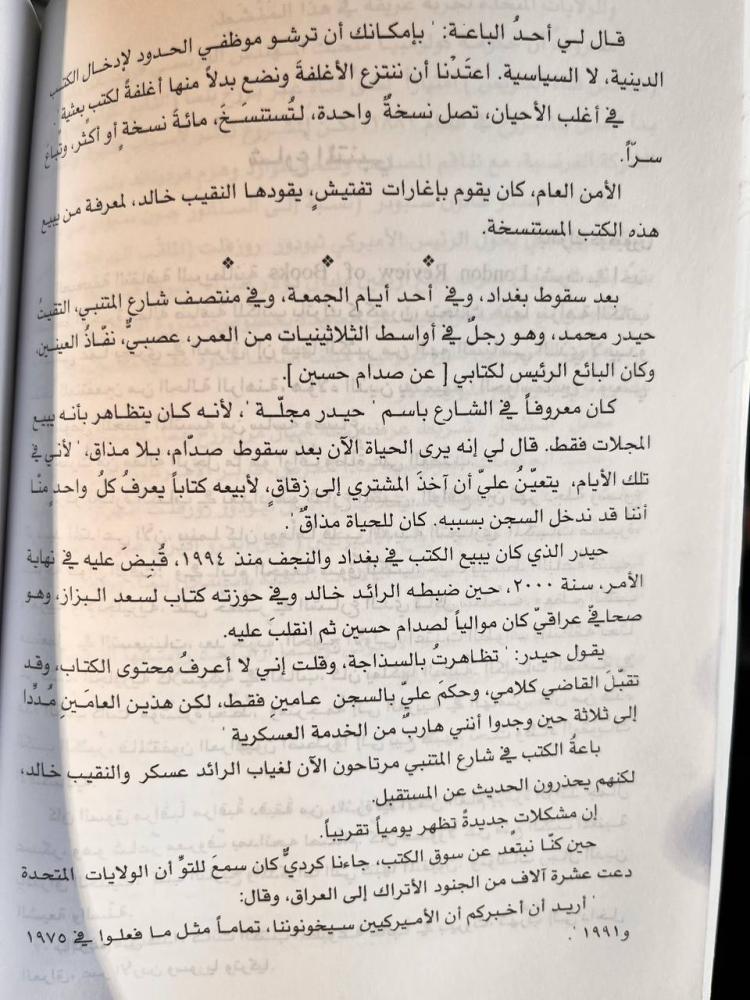 قال لي أحدُ الباعة: ' بإمكانك أن ترشو موظفي الحدود لإدخال الكتب
الدينية، لا السياسية. اعتَدْنا أن ننتزع الأغلفةَ ونضع بدلاً منها أغلفةً لكتبٍ بعثية '.
في أغلب الأحيان، تصل نسخةٌ واحدة، لتُستنسَخَ، مائةَ نسخةٍ أو أكثر، وتُباعَ
سرّاً.
الأمن العام، كان يقوم بإغارات تفتيشٍ، يقودها النقيب خالد، لمعرفة من يبيع
هذه الكتب المستنسخة.
❖ ❖ ❖
بعد سقوط بغداد، وفي أحد أيام الجمعة، وفي منتصف شارع المتنبي، التقيتُ
حيدر محمد، وهو رجلٌ في أواسط الثلاثينيات من العمر، عصبيٌّ، نفّاذُ العينين،
وكان البائع الرئيس لكتابي [ عن صدام حسين ].
كان معروفاً في الشارع باسم ' حيدر مجلّة '، لأنه كان يتظاهر بأنه يبيع
المجلات فقط. قال لي إنه يرى الحياة الآن بعد سقوط صدّام، بلا مذاق، ' لأني في
تلك الأيام، يتعيّنُ عليّ أن آخذَ المشتري إلى زقاقٍ، لأبيعه كتاباً يعرفُ كلُ واحدٍ منّا
أننا قد ندخل السجن بسببه. كان للحياة مذاقٌ '.
حيدر الذي كان يبيع الكتب في بغداد والنجف منذ ١٩٩٤، قُبِضَ عليه في نهاية
الأمر، سنة ٢٠٠٠، حين ضبطه الرائد خالد وفي حوزته كتاب لسعد البزاز، وهو
صحافيّ عراقيّ كان موالياً لصدام حسين ثم انقلبَ عليه.
يقول حيدر: ' تظاهرتُ بالسذاجة، وقلت إني لا أعرفُ محتوى الكتاب، وقد
تقبّلَ القاضي كلامي، وحكمَ عليّ بالسجن عامينِ فقط، لكن هذين العامَينِ مُدِّدا
إلى ثلاثة حين وجدوا أنني هاربٌ من الخدمة العسكرية '
باعةُ الكتب في شارع المتنبي مرتاحون الآن لغياب الرائد عسكر والنقيب خالد،
لكنهم يحذرون الحديث عن المستقبل.
إن مشكلات جديدةً تظهر يومياً تقريباً.
حين كنّا نبتعد عن سوق الكتب، جاءنا كرديٌّ كان سمعَ للتوِّ أن الولايات المتحدة
دعت عشرة آلاف من الجنود الأتراك إلى العراق، وقال:
' أريد أن أخبركم أن الأميركيين سيخونوننا، تماماً مثل ما فعلوا في ١٩٧٥
و١٩٩١ '.